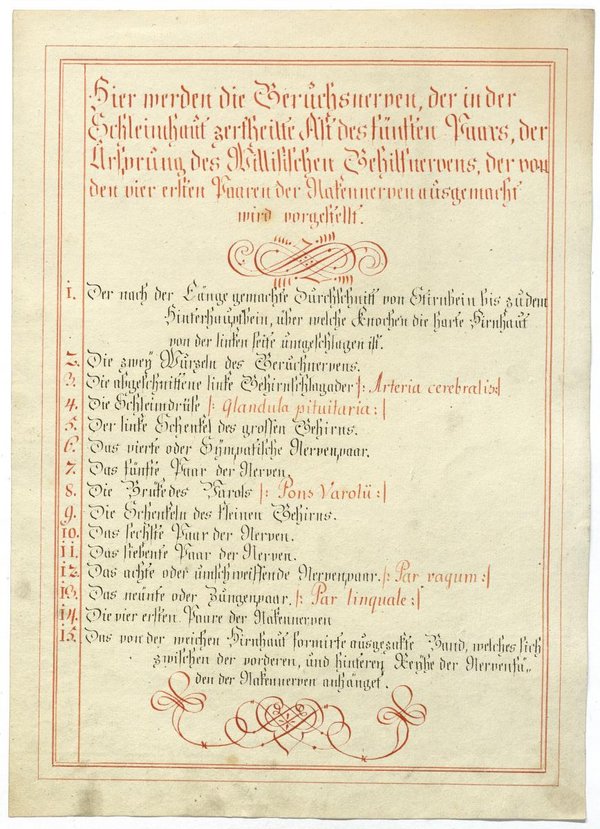 Hier werden die Geruchsnerven, der in der
Schleimhaut zertheilte Ast des fünften Paars, der
Ursprung des Willisischen Beihilfnervens, der von
den vier ersten Paaren der Nakennerven ausgemacht
wird vorgestellt.
1. Der nach der Länge gemachte Durchschnitt von Stirnbein bis zu dem
Hinterhauptbein, über welche Knochen die harte Hirnhaut
von der linken seite umgeschlagen ist.
2. Die zwey Wurzeln des Geruchnervens.
3. Die abgeschnittene linke Gehirnschlagader |: Arteria cerebralis:|
4. Die Schleimdrüse |: Glandula pituitaria :|
5. Der linke Schenkel des grossen Gehirns.
6. Das vierte oder Sympatische Nervenpaar.
7. Das fünfte Paar der Nerven.
8. Die Bruke des Varols |: Pons Varolii :|
9. Die Schenkeln des kleinen Gehirns.
10. Das sechste Paar der Nerven.
11. Das siebente Paar der Nerven.
12. Das achte oder umschweiffende Nervenpaar. |: Par vagum :|
13. Das neünte oder Züngenpaar. |: Par linquale :|
14. Die vier ersten Paare der Nakennerven
15. Das von der weichen Hirnhaut formirte ausgezakte Band, welches sich
zwischen der vorderen, und hinteren Reyhe der Nervenfä„
den der Nakennerven anhänget.